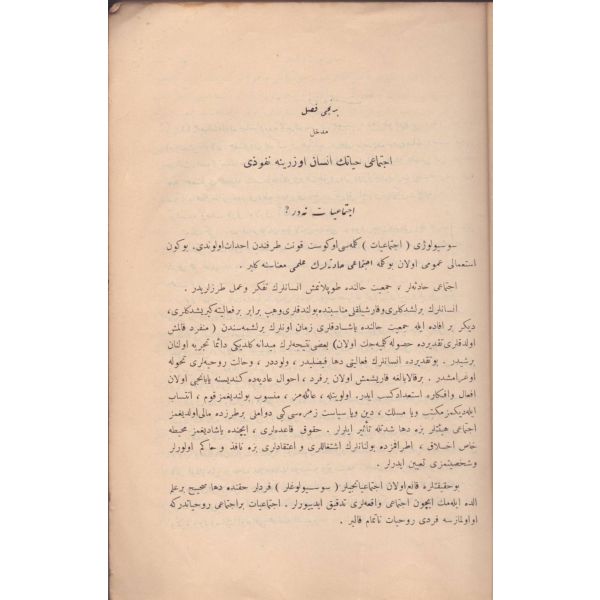 برنجی فصل
مدخل
اجتماعی حیاتك انسان اوزرینه نفوذی
اجتماعیات نه‌در ?
سوسیولوژی ( اجتماعیات ) كلمه‌سی اوكوست قونت طرفندن احداث اولوندی. بوكون
استعمالی عمومی اولان بو كلمه اجتماعی حادثه‌لرك علمی معناسنه كلیر .
اجتماعی حادثه‌لر ، جمعیت حالنده طوپلانمش انسانلرك تفكر و عمل طرزلریدر .
انسانلرك برلشدكلری وقارشیلقلی مناسبتده بولندقلری وهپ برابر برفعالیته كیریشدكلری،
دیكر بر افاده ایله جمعیت حالنده یاشادقلری زمان اونلرك برلشمه‌سندن ( منفرد قالمش
اولدقلری تقدیرده حصوله كلمیه‌جك اولان) بعضی نتیجه‌لرك میدانه كلدیكی دائما تجربه اولنان
برشیدر. بو تقدیرده انسانلرك فعالیتی دها فیضلیدر ، وحالت روحیه‌لری تحوله
اوغرامشدر . برقالابالغه قاریشمش اولان برفرد ، احوال عادیه‌ده كندیسنه یابانجی اولان
افعال وافكاره استعداد كسب ایدر. اولوینله ، عائله‌مز ، منسوب بولندیغمز قوم ، انتساب
ایله‌دیكمز مكتب ویا مسلك ، دین ویا سیاست زمره‌سی كبی دواملی برطرزده مالی اولدیغمز
اجتماعی هیئتلر بزه دها شدتله تأثیر ایلرلر . حقوق قاعده‌لری ، ایچنده یاشادیغمز محیطه
خاص اخلاق ، اطرافمزده بولنانلرك اشتغاللری و اعتقادلری بزه نافذ و حاكم اولورلر
وشخصیتمزی تعیین ایدرلر .
بو حقیقتلره قانع اولان اجتماعیاتجیلر ( سوسیولوغلر ) فردلر حقنده دها صحیح برعلم
الده ایله‌مك ایچون اجتماعی واقعه‌لری تدقیق ایدییورلر . اجتماعیات براجتماعی روحیاتدركه
او اولمازسه فردی روحیات ناتمام قالیر .